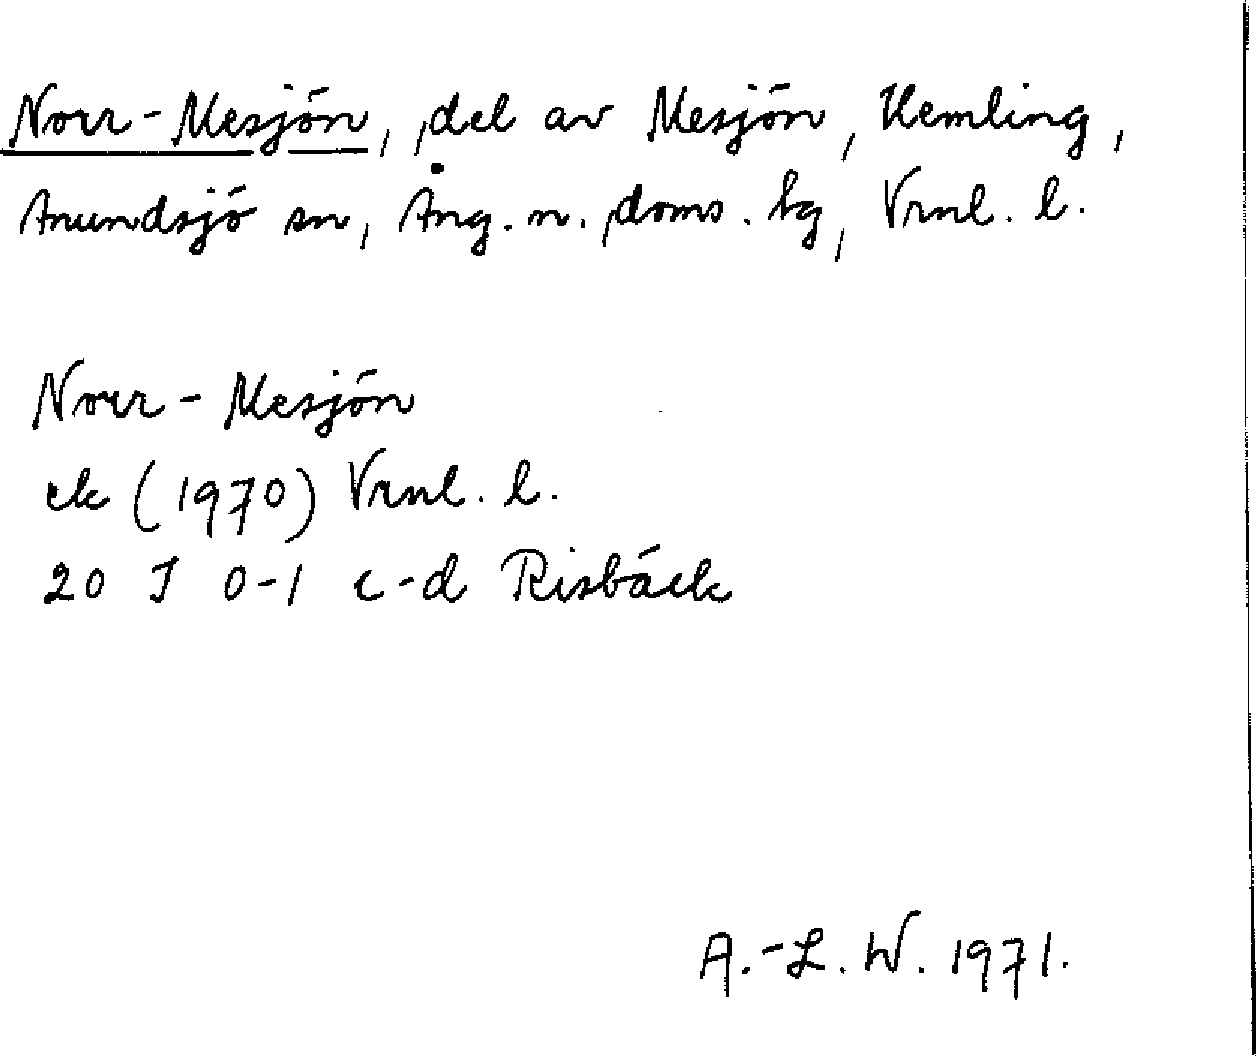 Norr-Mesjön, del av Mesjön, Hemling,
Anundsjö sn, Ång. n. doms. tg, Vrnl. l.
Norr-Mesjön
ek (1970) Vrnl. l.
20 J 0-1 c-d Risbäck
A.-L. W. 1971.